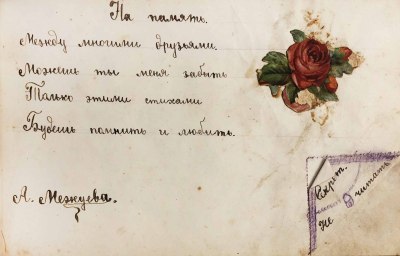 На память.
Между многими друзьями.
Можешь ты меня забыть
Только этими стихами
Будешь помнить и любить.
А. Межуева.
Секрет.
Не читать